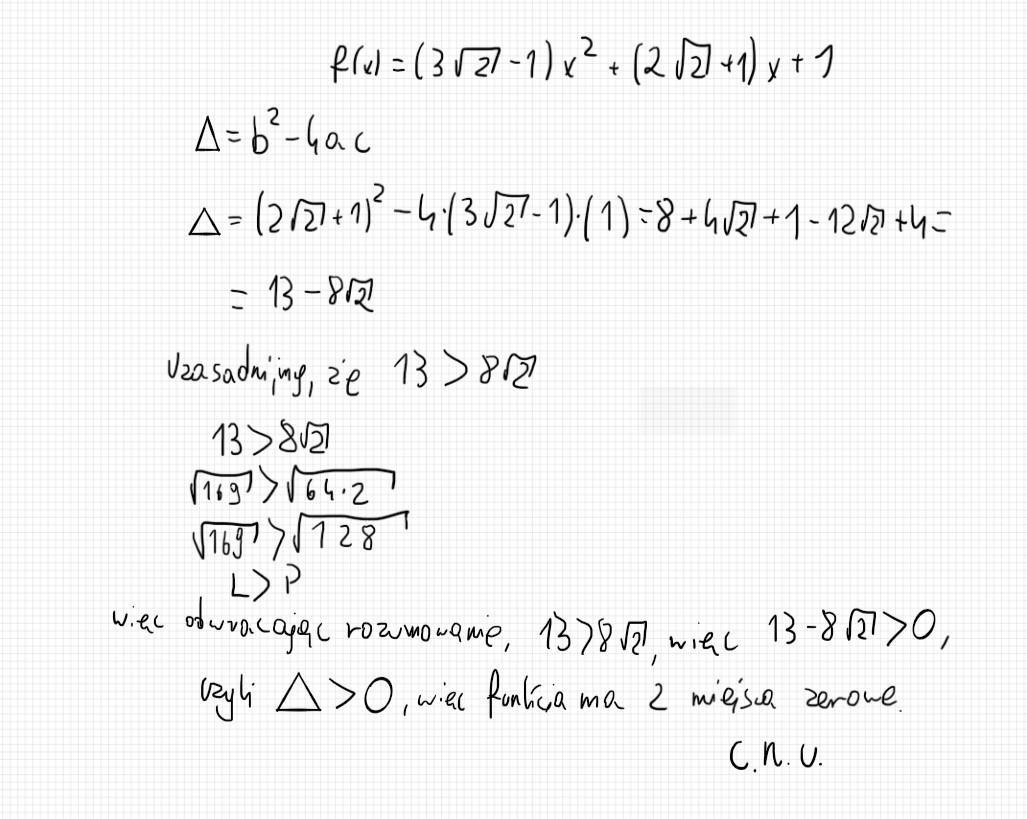 f(x) = (3√2 - 1) x² + (2√2 + 1) x + 1
Δ = b² - 4ac
Δ = (2√2 + 1)² - 4·(3√2 - 1)·(1) = 8 + 4√2 + 1 - 12√2 + 4 =
= 13 - 8√2
Uzasadnijmy, że 13 > 8√2
13 > 8√2
√169 > √64·2
√169 > √128
L > P
więc odwracając rozumowanie, 13 > 8√2, więc 13 - 8√2 > 0,
czyli Δ > 0, więc funkcja ma 2 miejsca zerowe.
C.N.U.